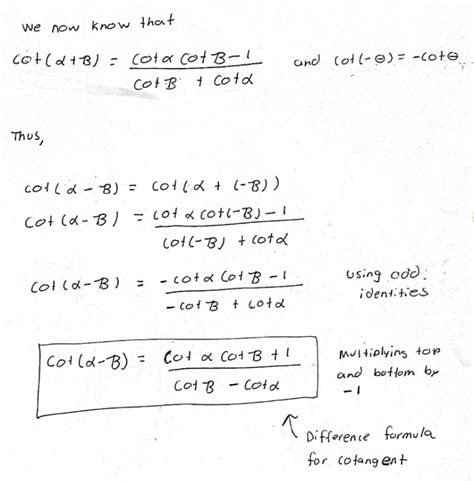 We now know that
cot(α+B) = cotα cotB-1 / cotB + cotα and cot(-θ) = -cotθ
Thus,
cot(α - B) = cot(α + (-B))
cot(α-B) = cotα cot(-B)-1 / cot(-B) + cotα
cot(α-B) = -cotα cotB - 1 / -cotB + cotα using odd identities
cot(α-B) = cotα cotB + 1 / cotB - cotα Multiplying top and bottom by -1
Difference formula
for cotangent